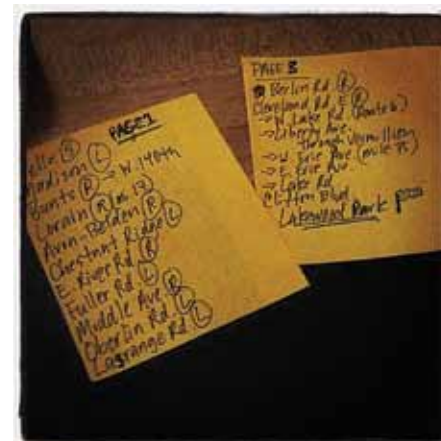 PAGE 1
Madison Ⓛ
Bunts Ⓡ → W. 140th
Lorain Ⓡ
Avon-Belden Ⓡ
Chestnut Ridge Ⓛ
E. River Rd. Ⓡ
Fuller Rd. Ⓛ
Middle Ave. Ⓡ
Oberlin Rd. Ⓛ
Lagrange Rd. Ⓛ
PAGE 3
Berlin Rd. Ⓡ
Cleveland Rd. E Ⓡ
→ W. Lake Rd. (Route 6)
→ Liberty Ave.
through Vermilion
→ W. Erie Ave.
→ E. Erie Ave.
→ Lake Rd.
Clifton Blvd.
Lakewood Park